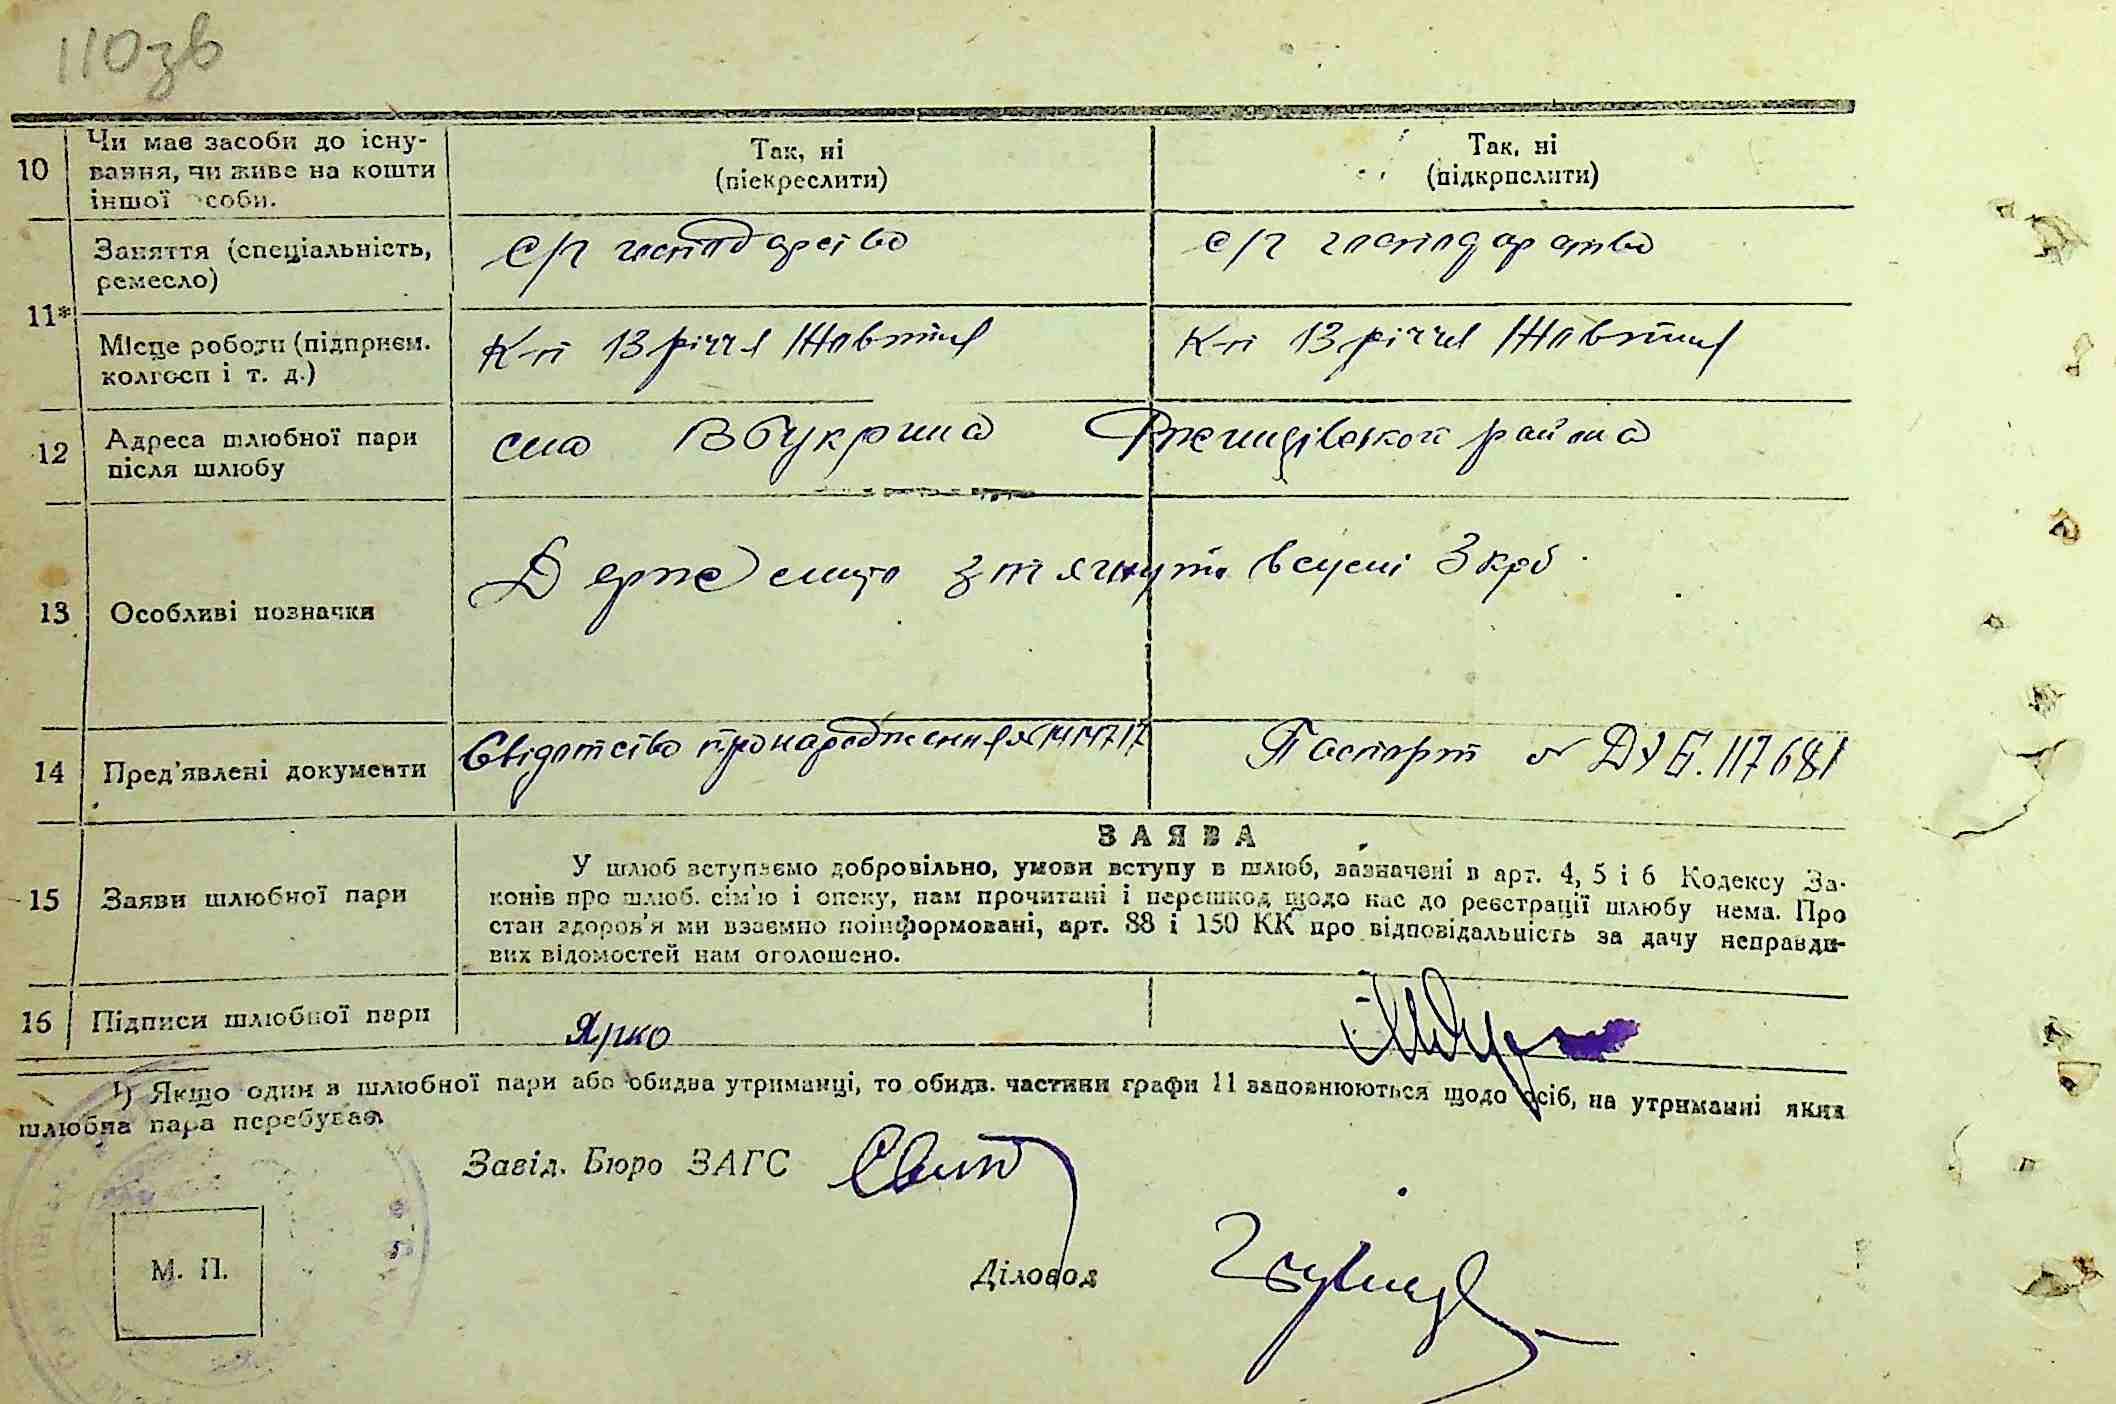 110зв
10 Чи має засоби до існу-
вання, чи живе на кошти
іншої особи.
Так, ні
(піекреслити)
Так, ні
(підкрпслити)
11* Заняття (спеціальність,
ремесло)
с/г господарство
с/г господарство
Місце роботи (підприєм.
колгосп і т. д.)
К-п 13 річчя Жовтня
К-п 13 річчя Жовтня
12 Адреса шлюбної пари
після шлюбу
село В Букрина Ржищівського района
13 Особливі позначки
Держ мито стягнуто в сумі 3 крб.
14 Пред'явлені документи
Свідотство про народження №
Паспорт № ДУБ. 117681
15 Заяви шлюбної пари
ЗАЯВА
У шлюб вступаємо добровільно, умови вступу в шлюб, зазначені в арт. 4, 5 і 6 Кодексу За-
конів про шлюб. сім'ю і опеку, нам прочитані і перешкод щодо нас до реєстрації шлюбу нема. Про
стан здоров'я ми взаємно поінформовані, арт. 88 і 150 КК про відповідальність за дачу неправди-
вих відомостей нам оголошено.
16 Підписи шлюбної пари
Ярко
¹) Якщо один в шлюбної пари або обидва утриманці, то обидв. частини графи 11 заповнюються щодо осіб, на утриманні яких
шлюбна пара перебуває.
Завід. Бюро ЗАГС
Діловод
М. П.